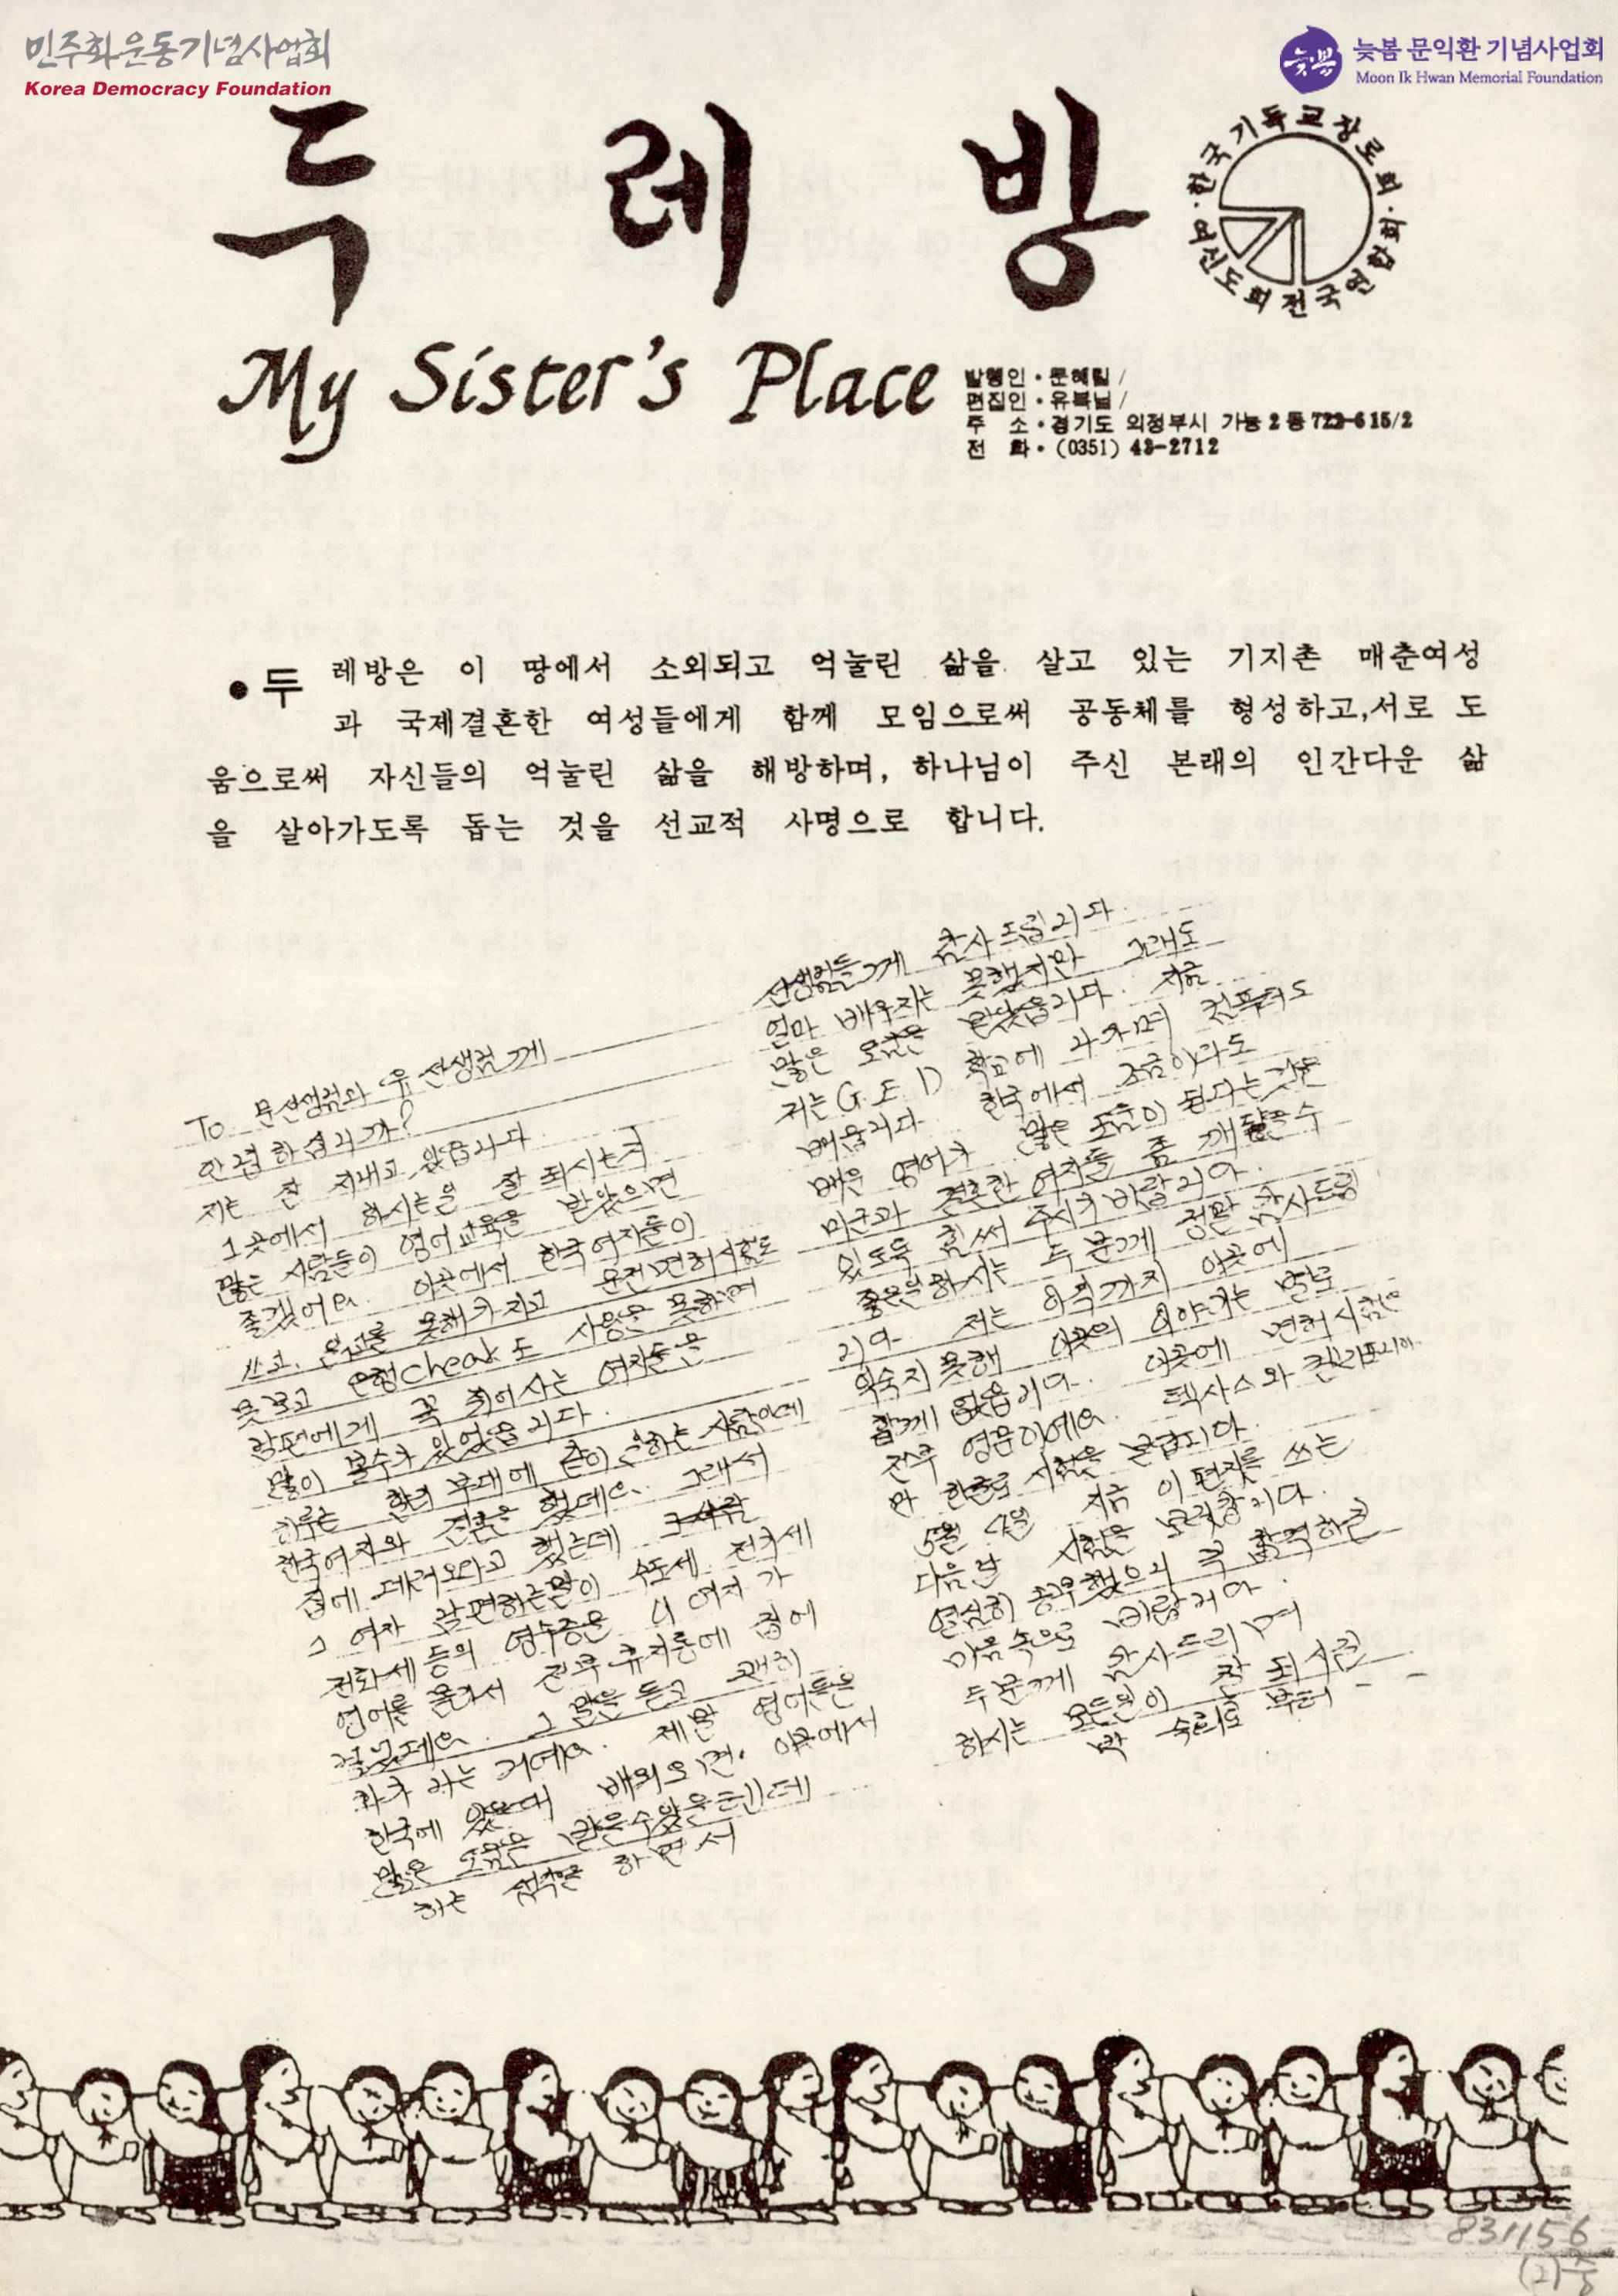 민주화운동기념사업회
Korea Democracy Foundation
늦봄
늦봄 문익환 기념사업회
Moon Ik Hwan Memorial Foundation
두레방
·한국기독교장로회·
여신도회전국연합회
My Sister's Place
발행인·문혜림/
편집인·유복님/
주 소·경기도 의정부시 가능2동 722-615/2
전 화·(0351) 43-2712
●두레방은 이 땅에서 소외되고 억눌린 삶을 살고 있는 기지촌 매춘여성
과 국제결혼한 여성들에게 함께 모임으로써 공동체를 형성하고,서로 도
움으로써 자신들의 억눌린 삶을 해방하며, 하나님이 주신 본래의 인간다운 삶
을 살아가도록 돕는 것을 선교적 사명으로 합니다.
To 문선생님과 유선생님께
안녕하십니까?
저는 잘 지내고 있읍니다
그곳에서 하시는일 잘 되시는지
많은 사람들이 영어교육을 받았으면
좋겠어요. 이곳에서 한국여자들이
쓰고, 읽고를 못해가지고 운전면허시험도
못보고 은행cheak도 사용을 못하며
남편에게 꼭 쥐어사는 여자들을
많이 볼수가 있었읍니다.
하루는 한 부대에 같이 일하는 사람인데
한국여자와 결혼을 했데요. 그래서
집에 데려오라고 했는데 그사람
그 여자 남편하는말이 수도세 전기세
전화세 등의 영수증은 이 여자가
영어를 몰라서 전부 휴지통에 집어
그 말을 듣고 괜히
화가 나는 거예요. 제발 영어를
한국에 있을때 배워오면. 이곳에서
많은 도움을 받을수있을텐데
하는 생각을 하면서
선생님들께 감사드립니다.
얼마 배우지는 못했지만 그래도
많은 도움을 받았읍니다. 지금
저는 G.E.D 학교에 나가며 컴퓨터도
배웁니다 한국에서 조금이라도
배운 영어가 많은 도움이 된다는것을
미군과 결혼한 여자들 좀 깨달을수
있도록 힘써 주시기 바랍니다.
좋은일하시는 두분께 정말 감사드립
니다. 저는 아직까지 이곳에
익숙지못해 이곳의 이야기는 별로
할게 없읍니다. 이곳에 면허시험은
전부 영문이예요. 텍사스와 캘리포니아
만 한글로 시험을 본답니다.
5월 4일 지금 이 편지를 쓰는
다음날 시험을 보러갑니다.
열심히 공부했으니 꼭 합격하길
마음속으로 바랍니다.
두분께 감사드리며
하시는 모든일이 잘 되시길
박 숙리로 부터
831156
(2)중